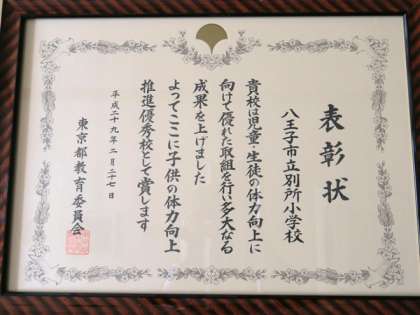 表彰状
八王子市立別所小学校
貴校は児童・生徒の体力向上に
向けて優れた取組を行い多大なる
成果を上げました
よってここに子供の体力向上
推進優秀校として賞します
平成二十九年二月二十七日
東京都教育委員会